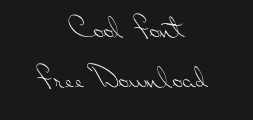 Cool Font
Free Download